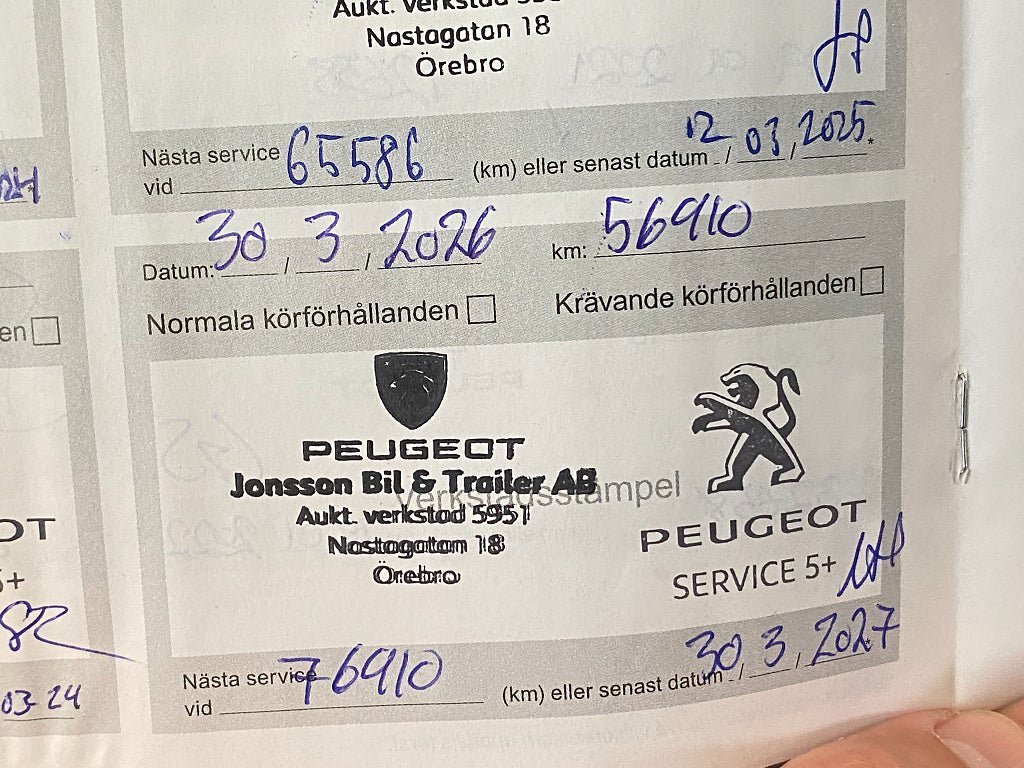 Aukt. verkstad 5951
Nastagatan 18
Örebro
Nästa service
vid 65586 (km) eller senast datum 12/03/2025
Datum: 30/3/2026 km: 56910
Normala körförhållanden Krävande körförhållanden
PEUGEOT
Jonsson Bil & Trailer AB
Verkstadsstämpel
Aukt. verkstad 5951
Nastagatan 18
Örebro
PEUGEOT
SERVICE 5+
Nästa service
vid 76910 (km) eller senast datum 30/3/2027
en
OT
5+
03-24